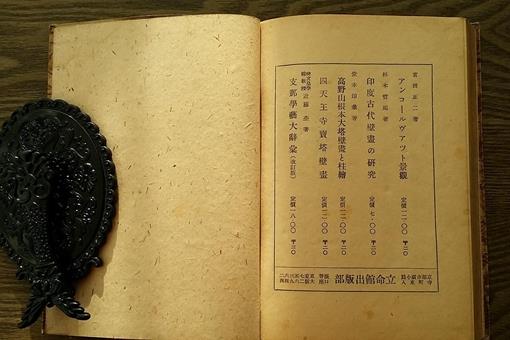 アンコールヴアツト景觀
杉本哲郎著
印度古代壁畫の研究 定價七・〇〇 〒三〇
堂本印象著
高野山根本大塔壁畫と柱繪 定價一二・〇〇 〒三〇
四天王寺寶塔壁畫 定價一二・〇〇 〒三〇
近藤杢著
支那學藝大辭彙(改訂版) 定價一八・〇〇 〒三〇
立命館出版部